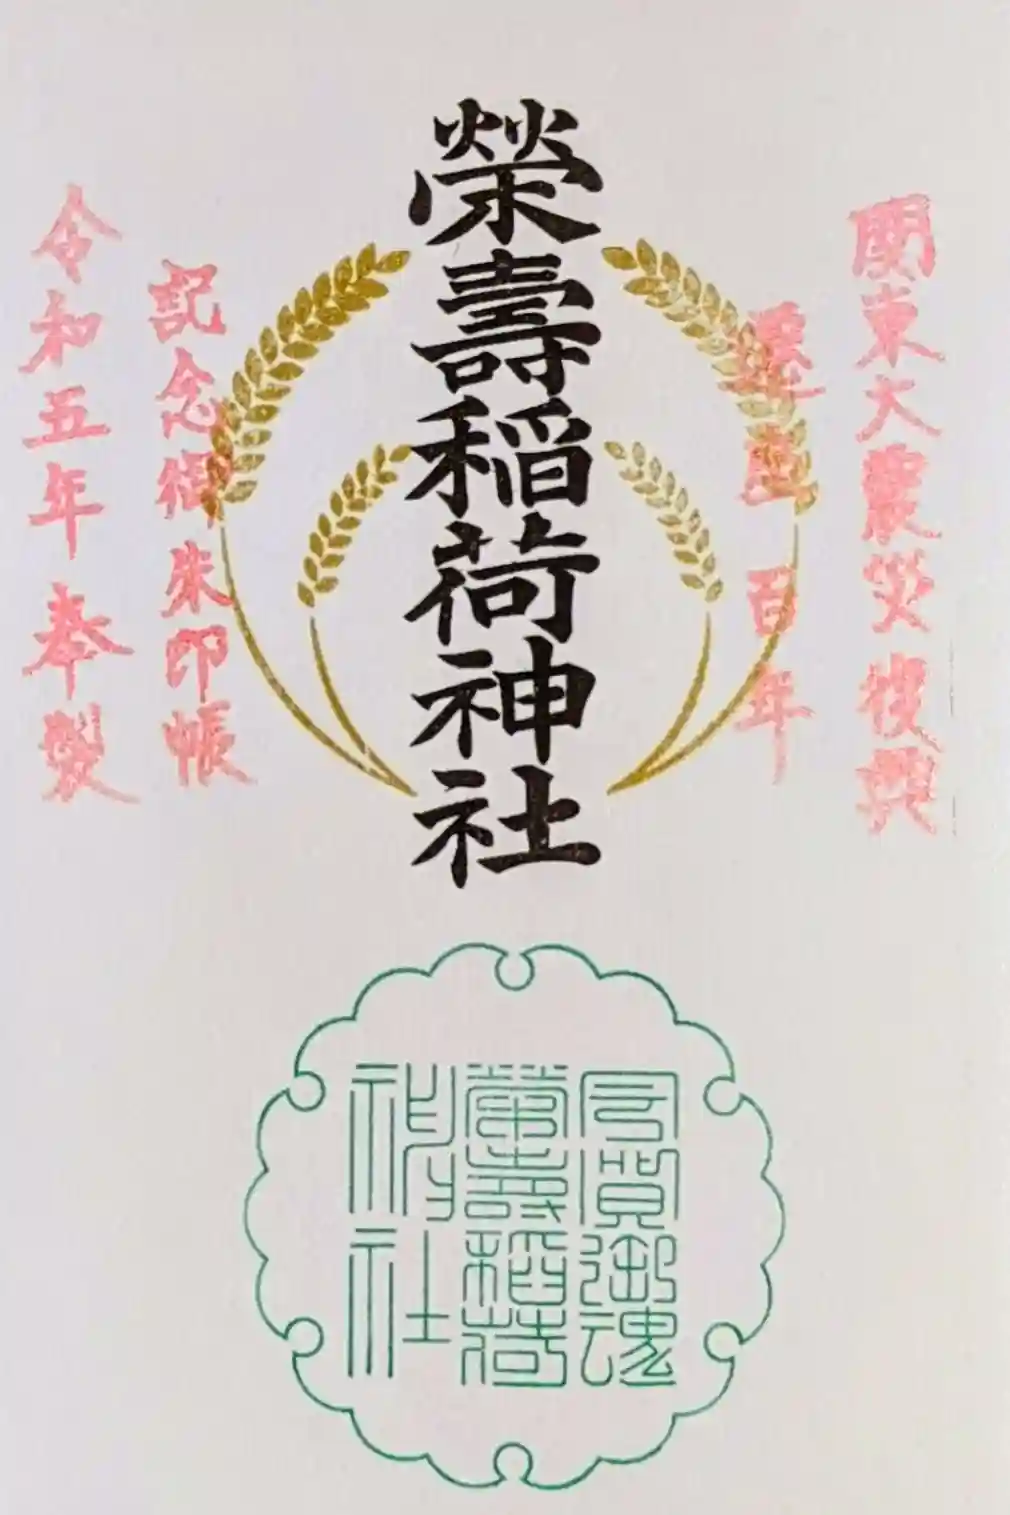 關東大震災復興
遷座百年
榮壽稲荷神社
記念御朱印帳
令和五年奉製
榮壽稲荷
神社